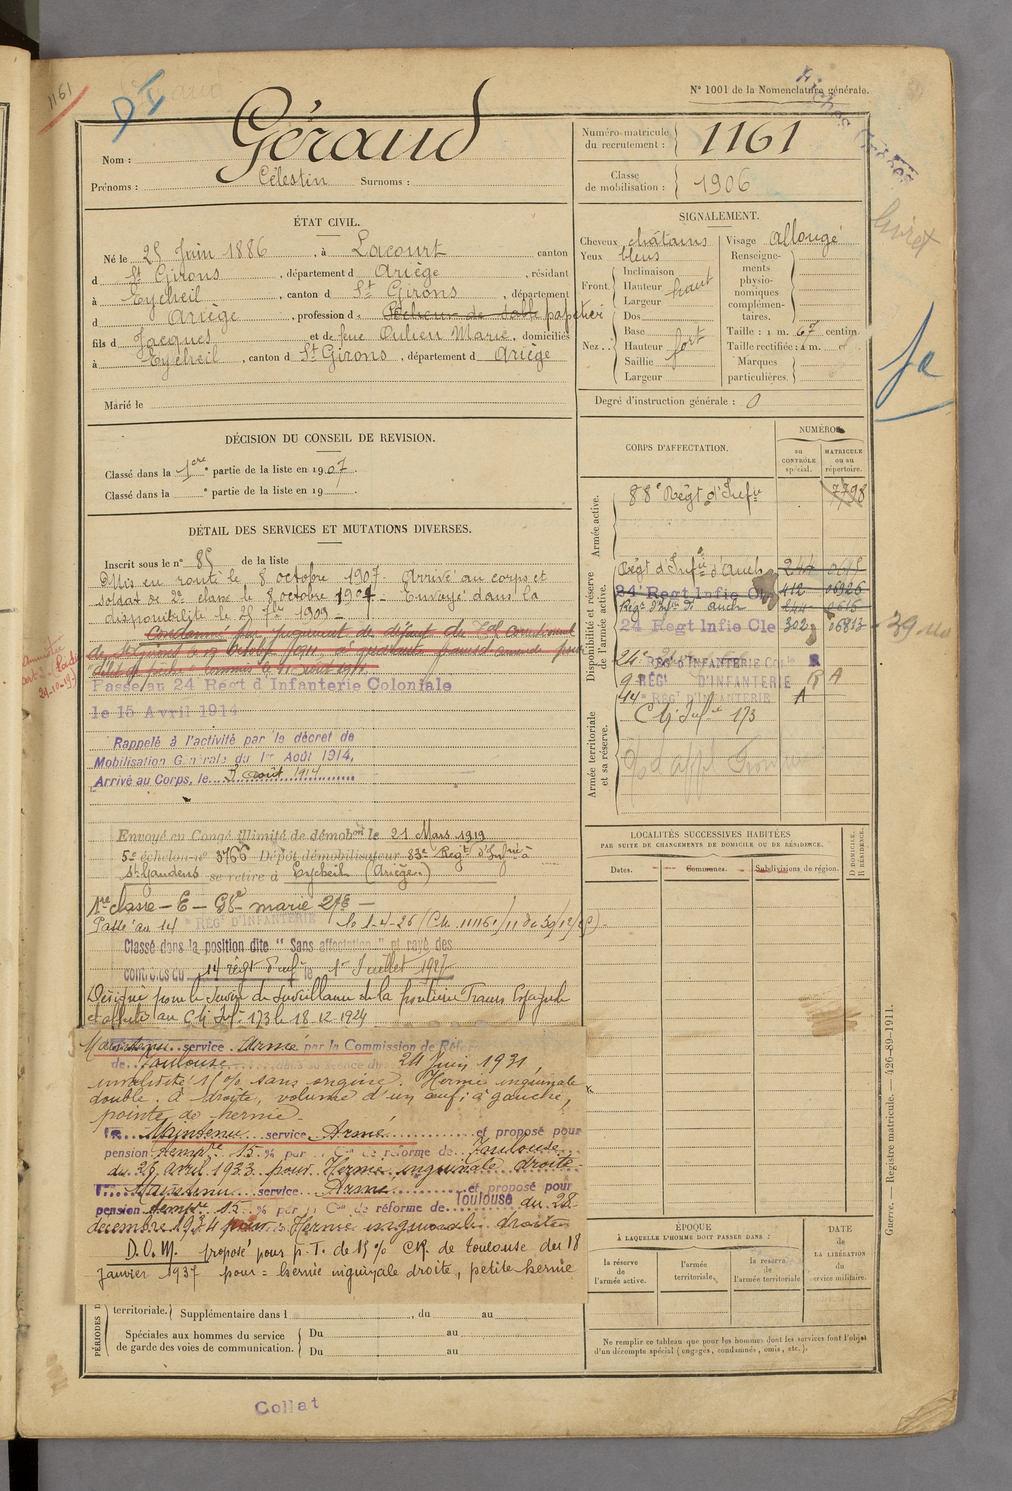 1161
N° 1001 de la Nomenclature générale.
Nom : Géraud
Prénoms : Célestin Surnoms :
Numéro matricule du recrutement : 1161
Classe de mobilisation : 1906
livret
ÉTAT CIVIL.
Né le 25 Juin 1886, à Lacourt canton
d St Girons, département d Ariège, résidant
à Eycheil, canton d St Girons, département
d Ariège, profession d papetier
fils d Jacques et de feue Marie, domiciliés
à Eycheil, canton d St Girons, département d Ariège
Marié le
SIGNALEMENT.
Cheveux châtains
Yeux bleus
Front. Inclinaison
Hauteur haut
Largeur
Nez.. Dos
Base
Hauteur fort
Saillie
Largeur
Visage allongé
Renseignements physionomiques complémentaires.
Taille : 1 m. 67 centim.
Taille rectifiée : 1 m. c
Marques particulières.
Degré d'instruction générale : 0
DÉCISION DU CONSEIL DE REVISION.
Classé dans la 1ère partie de la liste en 1907.
Classé dans la ° partie de la liste en 19
DÉTAIL DES SERVICES ET MUTATIONS DIVERSES.
Inscrit sous le n° 85 de la liste
Mis en route le 8 octobre 1907. Arrivé au corps et
soldat de 2e classe le 8 octobre 1907 - Envoyé dans la
disponibilité le 25 7bre 1909
Condamné par jugement de défaut du
Passé au 24 Régt d'Infanterie Coloniale
le 15 Avril 1914
Rappelé à l'activité par le décret de
Mobilisation Générale du 1er Août 1914,
Arrivé au Corps, le 3 août 1914
Envoyé en Congé illimité de démobon le 21 Mars 1919
5e échelon n° 3766 Dépôt démobilisateur 83e Régt d'Infrie à
St Gaudens se retire à Eycheil (Ariège)
1re classe - E - marié 2 fs -
Passé au 14e RÉGt D'INFANTERIE le 1-4-26
Classé dans la position dite "Sans affectation" et rayé des
contrôles du 14 régt d'infie le 1er Juillet 1927
Désigné pour le Service de Surveillance de la frontière Franco Espagnole
et affecté au C4 Infie 173 le 18.12.1929
Maintenu service Armé par la Commission de Réforme
de Toulouse dans sa séance du 24 Juin 1931,
invalidité 15% sans origine. Hernie inguinale
double. A droite, volume d'un œuf, à gauche,
pointe de hernie.
Maintenu service Armé et proposé pour
pension tempre 15.% par Con de réforme de Toulouse
du 26 avril 1933 pour Hernie inguinale droite
Maintenu service Armé et proposé pour
pension tempre 15% par Con de réforme de Toulouse du 28
décembre 1934 pour Hernie inguinale droite
D.O.M. proposé pour p.T. de 15% CR. de Toulouse du 18
Janvier 1937 pour = hernie inguinale droite, petite hernie
PÉRIODES D
territoriale. Supplémentaire dans l , du au
Spéciales aux hommes du service de garde des voies de communication. Du au
Du au
CORPS D'AFFECTATION.
NUMÉROS
au CONTRÔLE spécial.
MATRICULE ou au répertoire.
Armée active.
88e Régt d'Infie 7798
Disponibilité et réserve de l'armée active.
Régt d'Infie d'Auch
24e Regt Infie Cle 412 06926
Régt d'Infie d'Auch
24 Regt Infie Cle 302 06813
24e RÉGt d'INFANTERIE Cole R
9e RÉGt D'INFANTERIE R A
14e RÉGt D'INFANTERIE A
Armée territoriale et sa réserve.
C4 Infie 173
LOCALITÉS SUCCESSIVES HABITÉES
PAR SUITE DE CHANGEMENTS DE DOMICILE OU DE RÉSIDENCE.
Dates. Communes. Subdivisions de région.
D DOMICILE. R RÉSIDENCE.
ÉPOQUE
À LAQUELLE L'HOMME DOIT PASSER DANS :
la réserve de l'armée active.
l'armée territoriale.
la réserve de l'armée territoriale
DATE de LA LIBÉRATION du service militaire.
Ne remplir ce tableau que pour les hommes dont les services font l'objet
d'un décompte spécial (engagés, condamnés, omis, etc.).
Guerre. — Registre matricule. — 426-89-1911.
Collat